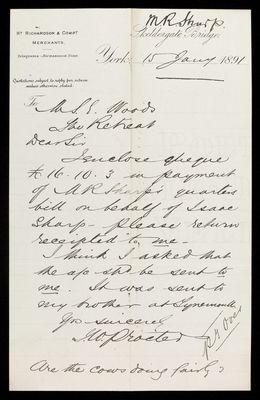 M R Sharp.
Hy RICHARDSON & COMPY
MERCHANTS.
Skeldergate Bridge,
TELEGRAMS - RICHARDSON YORK
York 15 Jany 1891
Quotations subject to reply per return
unless otherwise stated.
To M. S. E. Woods
The Retreat
Dear Sir
I enclose cheque
£16.10.3 in payment
of M R Sharp's quarters
bill on behalf of Isaac
Sharp - please return
receipted to me -
I think I asked that
the a/c shd be sent to
me. It was sent to
my brother at Tynemouth
Yrs sincerely
Procter
pt over
Are the cows doing fairly?